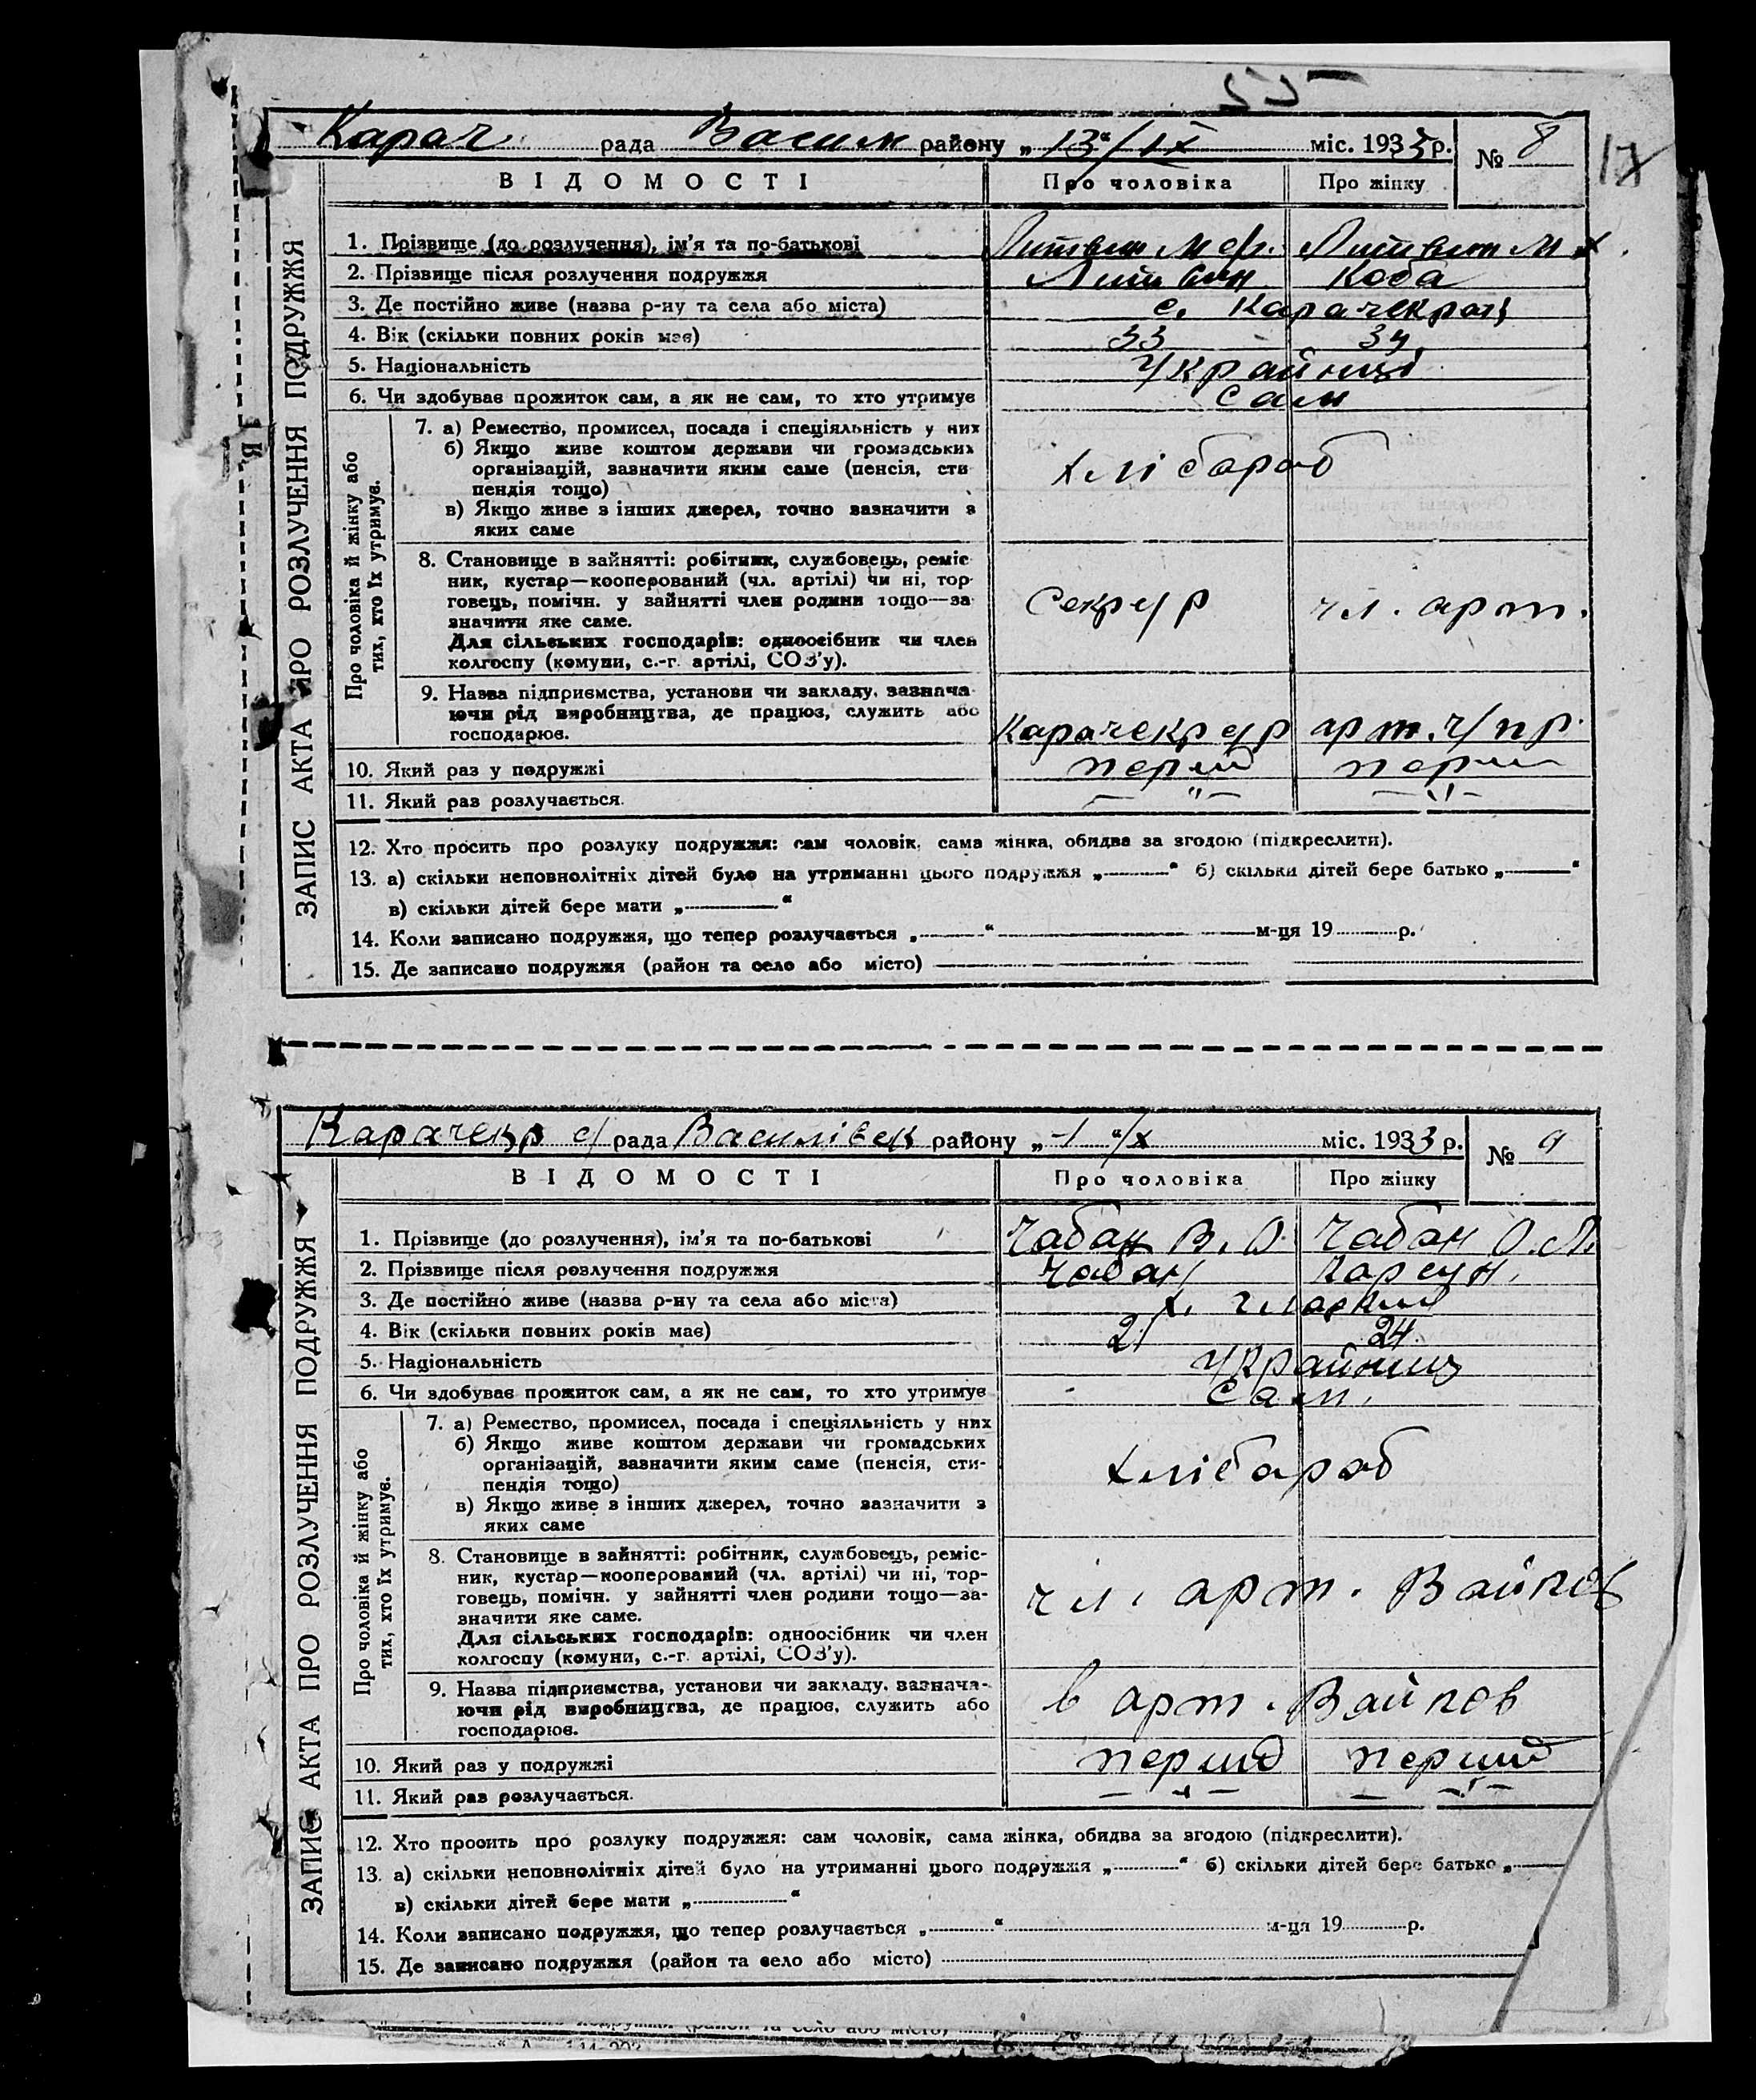 Карач рада Васил району „13“/IX міс. 1933 р. № 8
17
ВІДОМОСТІ Про чоловіка Про жінку
ЗАПИС АКТА ПРО РОЗЛУЧЕННЯ ПОДРУЖЖЯ
1. Прізвище (до розлучення), ім’я та по-батькові Литвин М Литвин М
2. Прізвище після розлучення подружжя Литвин Коба
3. Де постійно живе (назва р-ну та села або міста) с. Карачекрак
4. Вік (скільки повних років має) 33 34
5. Національність Українці
6. Чи здобуває прожиток сам, а як не сам, то хто утримує Сам
Про чоловіка й жінку або
тих, хто їх утримує.
7. а) Ремество, промисел, посада і спеціяльність у них
б) Якщо живе коштом держави чи громадських
організацій, зазначити яким саме (пенсія, сти
пендія тощо) хлібароб
в) Якщо живе з інших джерел, точно зазначити з
яких саме
8. Становище в зайнятті: робітник, службовець, реміс
ник, кустар—кооперований (чл. артілі) чи ні, тор-
говець, помічн. у зайнятті член родини тощо—за
значити яке саме. Секр чл. арт.
Для сільських господарів: одноосібник чи член
колгоспу (комуни, с.-г. артілі, СОЗ’у).
9. Назва підприємства, установи чи закладу, зазнача
ючи рід виробництва, де працює, служить або
господарює. Карачекр арт.
10. Який раз у подружжі перший перш
11. Який раз розлучається. — „ — — „ —
12. Хто просить про розлуку подружжя: сам чоловік, сама жінка, обидва за згодою (підкреслити).
13. а) скільки неповнолітніх дітей було на утриманні цього подружжя „ “ б) скільки дітей бере батько „ “
в) скільки дітей бере мати „ “
14. Коли записано подружжя, що тепер розлучається „ “ м-ця 19 р.
15. Де записано подружжя (район та село або місто)
Карачекр с/ рада Василівськ району „1“/X міс. 1933 р. № 9
ВІДОМОСТІ Про чоловіка Про жінку
ЗАПИС АКТА ПРО РОЗЛУЧЕННЯ ПОДРУЖЖЯ
1. Прізвище (до розлучення), ім’я та по-батькові Чабан В. О. Чабан О. Л.
2. Прізвище після розлучення подружжя Чабан Карсун
3. Де постійно живе (назва р-ну та села або міста) х.
4. Вік (скільки повних років має) 21 24
5. Національність Українц
6. Чи здобуває прожиток сам, а як не сам, то хто утримує Сам.
Про чоловіка й жінку або
тих, хто їх утримує.
7. а) Ремество, промисел, посада і спеціяльність у них
б) Якщо живе коштом держави чи громадських
організацій, зазначити яким саме (пенсія, сти-
пендія тощо) хлібароб
в) Якщо живе з інших джерел, точно зазначити з
яких саме
8. Становище в зайнятті: робітник, службовець, реміс-
ник, кустар—кооперований (чл. артілі) чи ні, тор-
говець, помічн. у зайнятті член родини тощо—за-
значити яке саме. чл. арт. Вайков
Для сільських господарів: одноосібник чи член
колгоспу (комуни, с.-г. артілі, СОЗ’у).
9. Назва підприємства, установи чи закладу, зазнача-
ючи рід виробництва, де працює, служить або
господарює. в арт. Вайков
10. Який раз у подружжі перший перший
11. Який раз розлучається. — „ — — „ —
12. Хто просить про розлуку подружжя: сам чоловік, сама жінка, обидва за згодою (підкреслити).
13. а) скільки неповнолітніх дітей було на утриманні цього подружжя „ “ б) скільки дітей бере батько „
в) скільки дітей бере мати „ “
14. Коли записано подружжя, що тепер розлучається „ “ м-ця 19 р.
15. Де записано подружжя (район та село або місто)